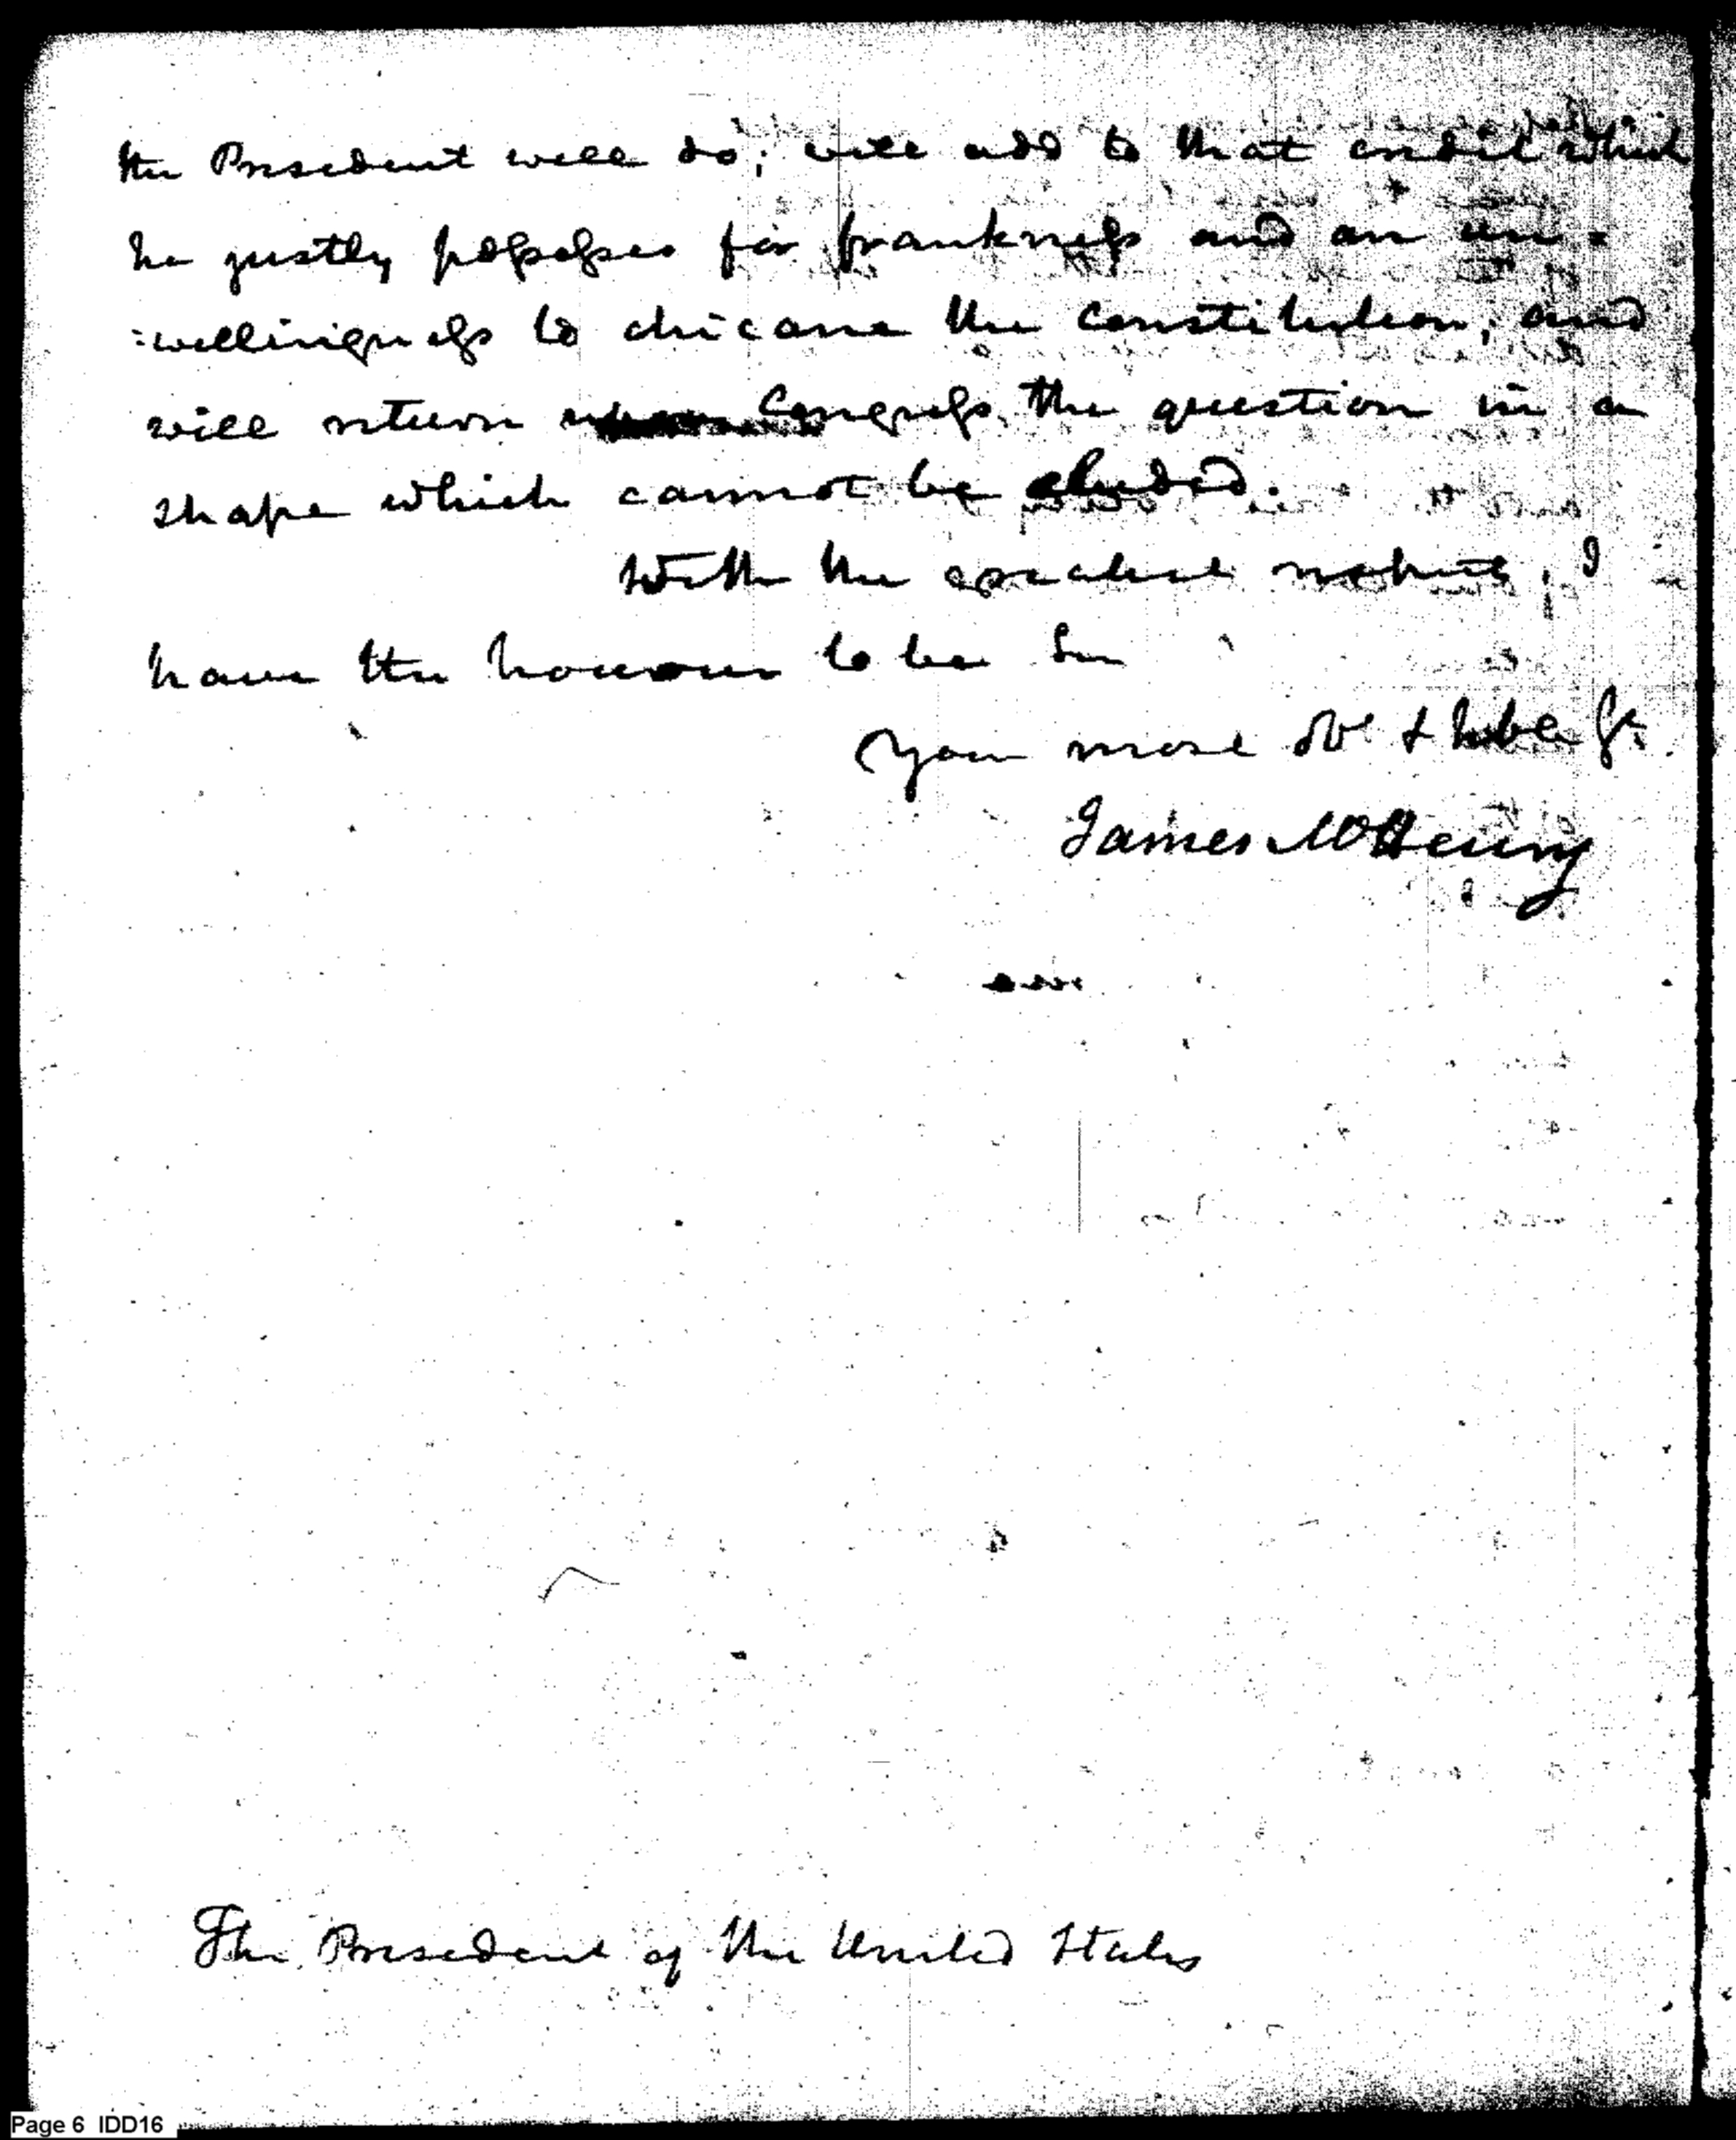 the President will do; will add to that credit which
he justly possesses for frankness and an un=
=willingness to chicane the constitution; and
will return Congress the question in a
shape which cannot be eluded.
With the greatest respect, I
have the honour to be Sir
Your most Obt & hble St.
James McHenry
The President of the United States
Page 6 IDD16